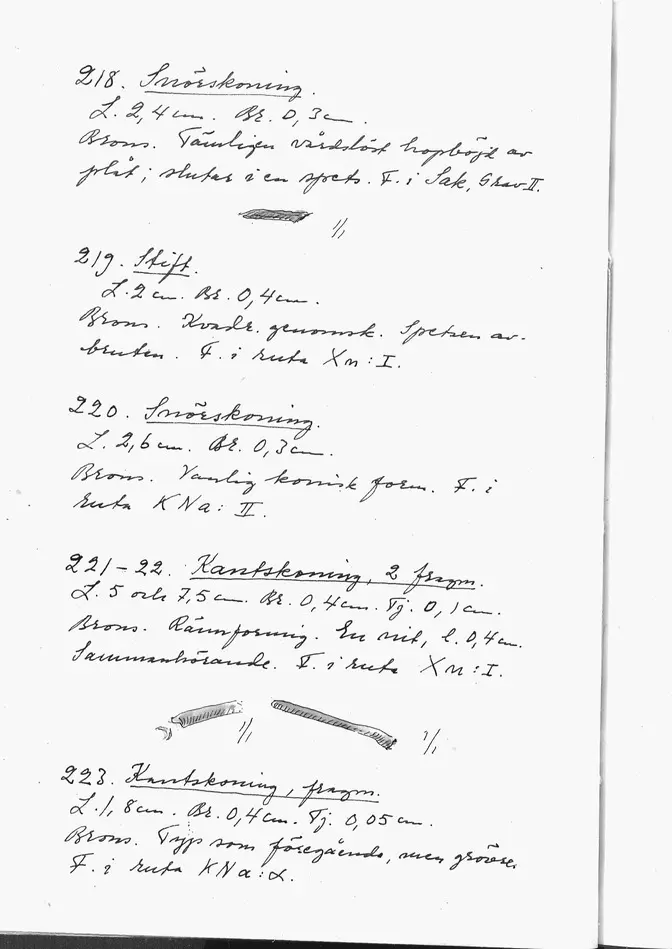 218. Snörskoning.
L. 2,4 cm. Br. 0,3 cm.
Brons. Tämligen vårdslöst hopböjt av
plåt; slutar i en spets. F. i Sak, Grav II.
1/1
219. Stift.
L. 2 cm. Br. 0,4 cm.
Brons. Kvadr. genomsk. Spetsen av-
bruten. F. i ruta Xn: I.
220. Snörskoning.
L. 2,6 cm. Br. 0,3 cm.
Brons. Vanlig konisk form. F. i
ruta KNa: II.
221-22. Kantskoning, 2 fragm.
L. 5 och 7,5 cm. Br. 0,4 cm. Tj. 0,1 cm.
Brons. Rännformig. En nit, l. 0,4 cm.
Sammanhörande. F. i ruta Xn: I.
1/1 1/1
223. Kantskoning, fragm.
L. 1,8 cm. Br. 0,4 cm. Tj. 0,05 cm.
Brons. Typ som föregående, men grövre.
F. i ruta KNa: α.